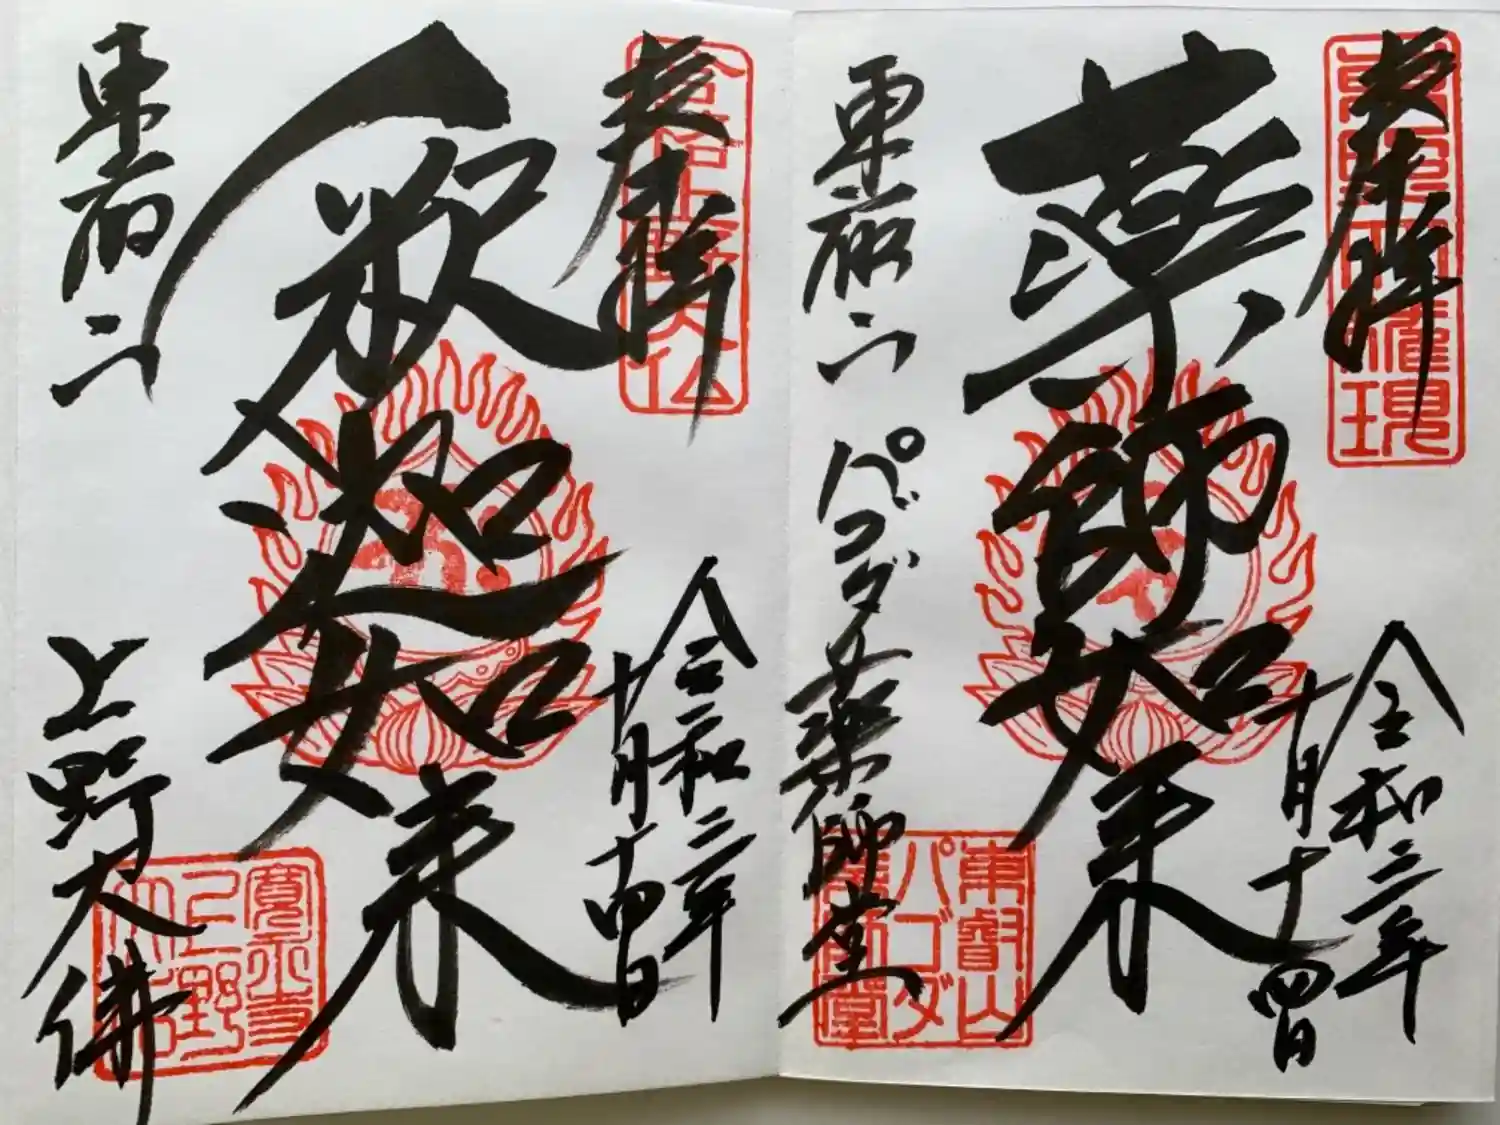 奉拝
薬師如来
令和三年
十月十四日
パゴダ薬師堂
東叡山
パゴダ
薬師堂
奉拝
合格上野大仏
釈迦如来
令和三年
十月十四日
上野大佛
寛永寺
上野
大仏